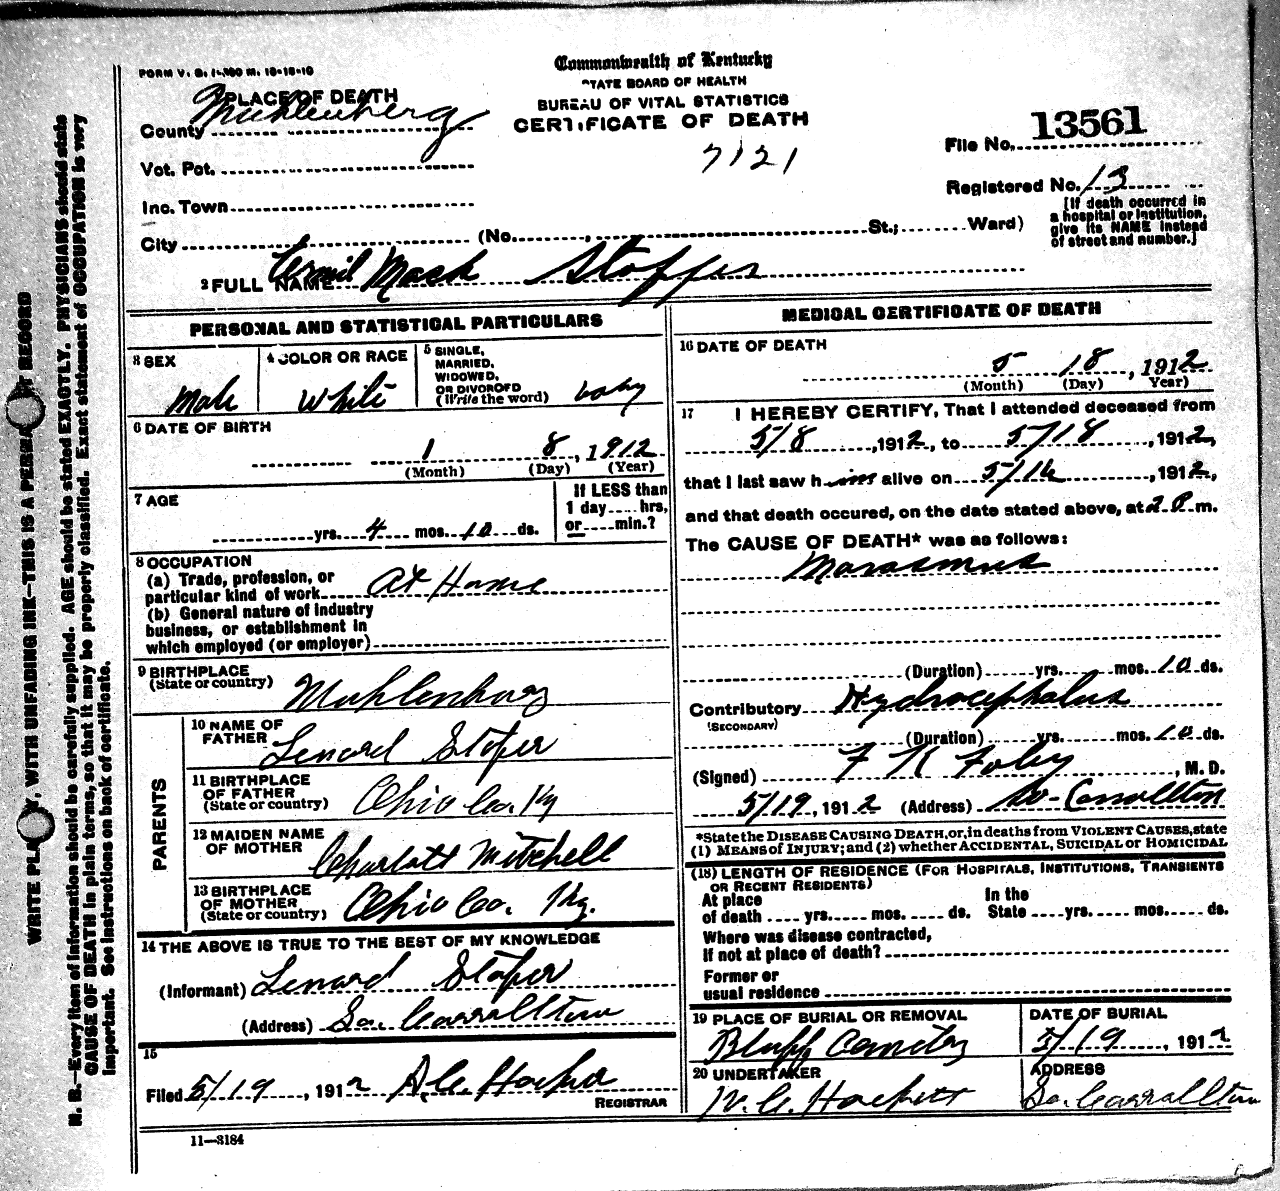 FORM V. S. 1-300 M. 10-10-10
Commonwealth of Kentucky
STATE BOARD OF HEALTH
BUREAU OF VITAL STATISTICS
CERTIFICATE OF DEATH
7121
PLACE OF DEATH
County Muhlenberg
Vot. Pct.
Inc. Town
City (No. St.; Ward)
File No. 13561
Registered No. 13
[If death occurred in
a hospital or institution,
give its NAME instead
of street and number.]
2 FULL NAME Mack Stofer
PERSONAL AND STATISTICAL PARTICULARS
3 SEX
Male
4 COLOR OR RACE
White
5 SINGLE,
MARRIED,
WIDOWED,
OR DIVORCED
(Write the word) baby
6 DATE OF BIRTH
1 8, 1912
(Month) (Day) (Year)
7 AGE
yrs. 4 mos. 10 ds.
If LESS than
1 day.... hrs,
or.....min.?
8 OCCUPATION
(a) Trade, profession, or
particular kind of work At Home
(b) General nature of industry
business, or establishment in
which employed (or employer)
9 BIRTHPLACE
(State or country) Muhlenberg
PARENTS
10 NAME OF
FATHER Lenard Stofer
11 BIRTHPLACE
OF FATHER
(State or country) Ohio Co. Ky
12 MAIDEN NAME
OF MOTHER Charlott Mitchell
13 BIRTHPLACE
OF MOTHER
(State or country) Ohio Co. Ky.
14 THE ABOVE IS TRUE TO THE BEST OF MY KNOWLEDGE
(Informant) Lenard Stofer
(Address) So. Carrallton
15
Filed 5/19, 1912
REGISTRAR
11-3184
MEDICAL CERTIFICATE OF DEATH
16 DATE OF DEATH
5 18, 1912
(Month) (Day) Year)
17 I HEREBY CERTIFY, That I attended deceased from
5/8, 1912, to 5/18, 1912,
that I last saw h im alive on 5/16, 1912,
and that death occured, on the date stated above, at 2 P. m.
The CAUSE OF DEATH* was as follows:
Marasmus
(Duration) yrs. mos. 10 ds.
Contributory Hydrocephalus
(SECONDARY)
(Duration) yrs. mos. 10 ds.
(Signed) F K Foley, M. D.
5/19, 1912 (Address) So-Carrollton
*State the DISEASE CAUSING DEATH, or, in deaths from VIOLENT CAUSES, state
(1) MEANS of INJURY; and (2) whether ACCIDENTAL, SUICIDAL or HOMICIDAL
(18) LENGTH OF RESIDENCE (FOR HOSPITALS, INSTITUTIONS, TRANSIENTS
OR RECENT RESIDENTS)
At place
of death .... yrs. .... mos. .... ds.
In the
State .... yrs. .... mos. .... ds.
Where was disease contracted,
If not at place of death?
Former or
usual residence
19 PLACE OF BURIAL OR REMOVAL
Bluff Cemetery
DATE OF BURIAL
5/19, 1912
20 UNDERTAKER
W. C. Hockett
ADDRESS
So. Carrallton
N. B.-Every item of information should be carefully supplied. AGE should be stated EXACTLY. PHYSICIANS should state
CAUSE OF DEATH in plain terms, so that it may be properly classified. Exact statement of OCCUPATION is very
important. See instructions on back of certificate.
WRITE PLAINLY, WITH UNFADING INK-THIS IS A PERMANENT RECORD